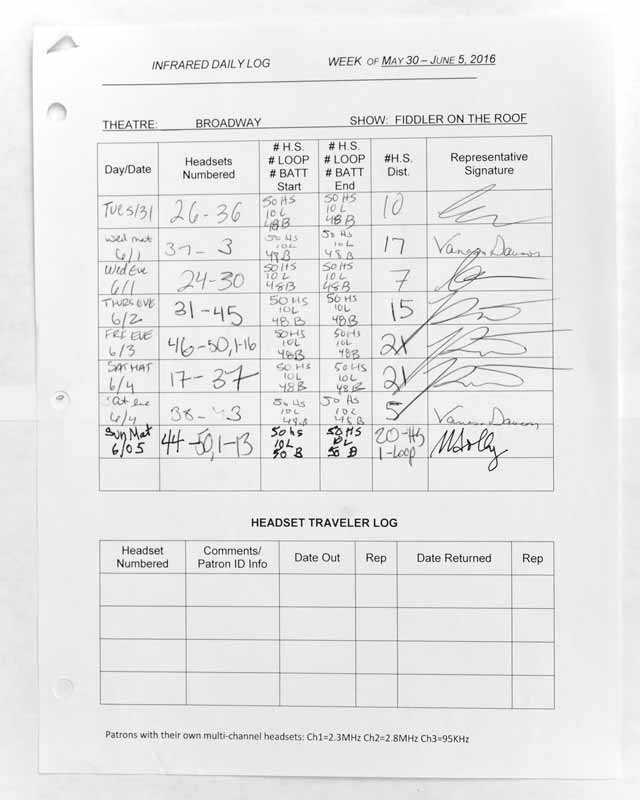 INFRARED DAILY LOG WEEK OF MAY 30 – JUNE 5, 2016
THEATRE: BROADWAY SHOW: FIDDLER ON THE ROOF
Day/Date Headsets Numbered # H.S. # LOOP # BATT Start # H.S. # LOOP # BATT End #H.S. Dist. Representative Signature
Tues/31 26-36 50 HS 10 L 48B 50 HS 10 L 48B 10
Wed mat 6/1 37- 3 50 HS 10L 48B 50 HS 10L 48B 17
Wed Eve 6/1 24-30 50HS 10L 48B 50HS 10L 48B 7
THURS EVE 6/2 31-45 50HS 10L 48B 50HS 10L 48B 15
FRI EVE 6/3 46-50,1-16 50HS 10L 48B 50HS 10L 48B 21
SAT MAT 6/4 17-37 50HS 10L 48B 50HS 10L 48B 21
Sat eve 6/4 38-43 50 HS 10L 48B 50 HS 10L 48B 5
Sun Mat 6/05 44-50,1-13 50hs 10L 50 B 50HS 10L 50 B 20-HS 1-Loop
HEADSET TRAVELER LOG
Headset Numbered Comments/ Patron ID Info Date Out Rep Date Returned Rep
Patrons with their own multi-channel headsets: Ch1=2.3MHz Ch2=2.8MHz Ch3=95KHz